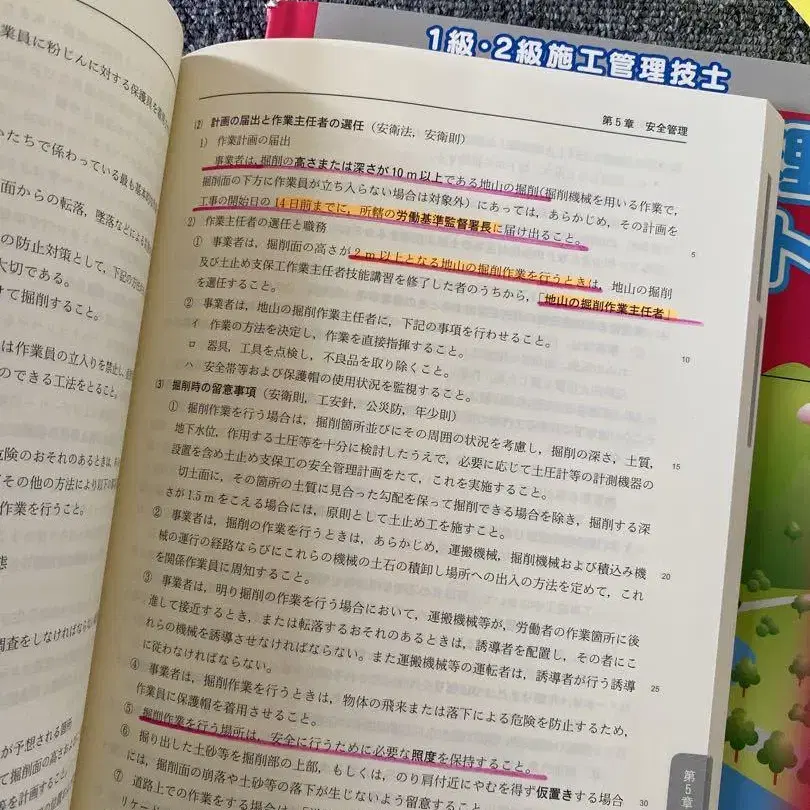 1級・2級施工管理技士
業員に粉じんに対する保護具を
かたちで係わっている最も基本
面からの転落，墜落などによる
の防止対策として，下記の
大切である。
けて掘削すること。
は作業員の立入りを禁止し，
のできる工法をとること。
危険のおそれのあるときは，
その他の方法により以下の
作業を行うこと。
態
調査をしなければならない
が予想される箇所
て掘削面の高さおよ
第5章　安全管理
(2)　計画の届出と作業主任者の選任（安衛法，安衛則）
1)　作業計画の届出
事業者は，掘削の高さまたは深さが10m以上である地山の掘削(掘削機械を用いる作業で，
掘削面の下方に作業員が立ち入らない場合は対象外）にあっては，あらかじめ，その計画を
工事の開始日の14日前までに，所轄の労働基準監督署長に届け出ること。
5
2)　作業主任者の選任と職務
①　事業者は，掘削面の高さが2m以上となる地山の掘削作業を行うときは，地山の掘削
及び土止め支保工作業主任者技能講習を修了した者のうちから，「地山の掘削作業主任者」
を選任すること。
②　事業者は，地山の掘削作業主任者に，下記の事項を行わせること。
10
イ　作業の方法を決定し，作業を直接指揮すること。
ロ　器具，工具を点検し，不良品を取り除くこと。
ハ　安全帯等および保護帽の使用状況を監視すること。
(3)　掘削時の留意事項（安衛則，工安針，公災防，年少則）
①　掘削作業を行う場合は，掘削箇所並びにその周囲の状況を考慮し，掘削の深さ，土質，
15
地下水位，作用する土圧等を十分に検討したうえで，必要に応じて土圧計等の計測機器の
設置を含め土止め支保工の安全管理計画をたて，これを実施すること。
切土面に，その箇所の土質に見合った勾配を保って掘削できる場合を除き，掘削する深
さが1.5mをこえる場合には，原則として土止め工を施すこと。
②　事業者は，掘削の作業を行うときは，あらかじめ，運搬機械，掘削機械および積込み機
20
械の運行の経路ならびにこれらの機械の土石の積卸し場所への出入の方法を定めて，これ
を関係作業員に周知すること。
③　事業者は，明り掘削の作業を行う場合において，運搬機械等が，労働者の作業箇所に後
進して接近するとき，または転落するおそれのあるときは，誘導者を配置し，その者にこ
れらの機械を誘導させなければならない。また運搬機械等の運転者は，誘導者が行う誘導
25
に従わなければならない。
④　事業者は，掘削作業を行うときは，物体の飛来または落下による危険を防止するため，
作業員に保護帽を着用させること。
⑤　掘削作業を行う場所は，安全に行うために必要な照度を保持すること。
⑥　掘り出した土砂等を掘削部の上部，もしくは，のり肩付近にやむを得ず仮置きする場合
30
には，掘削面の崩落や土砂等の落下が生じないよう留意すること。
⑦　道路上での作業をする場合は
第5章